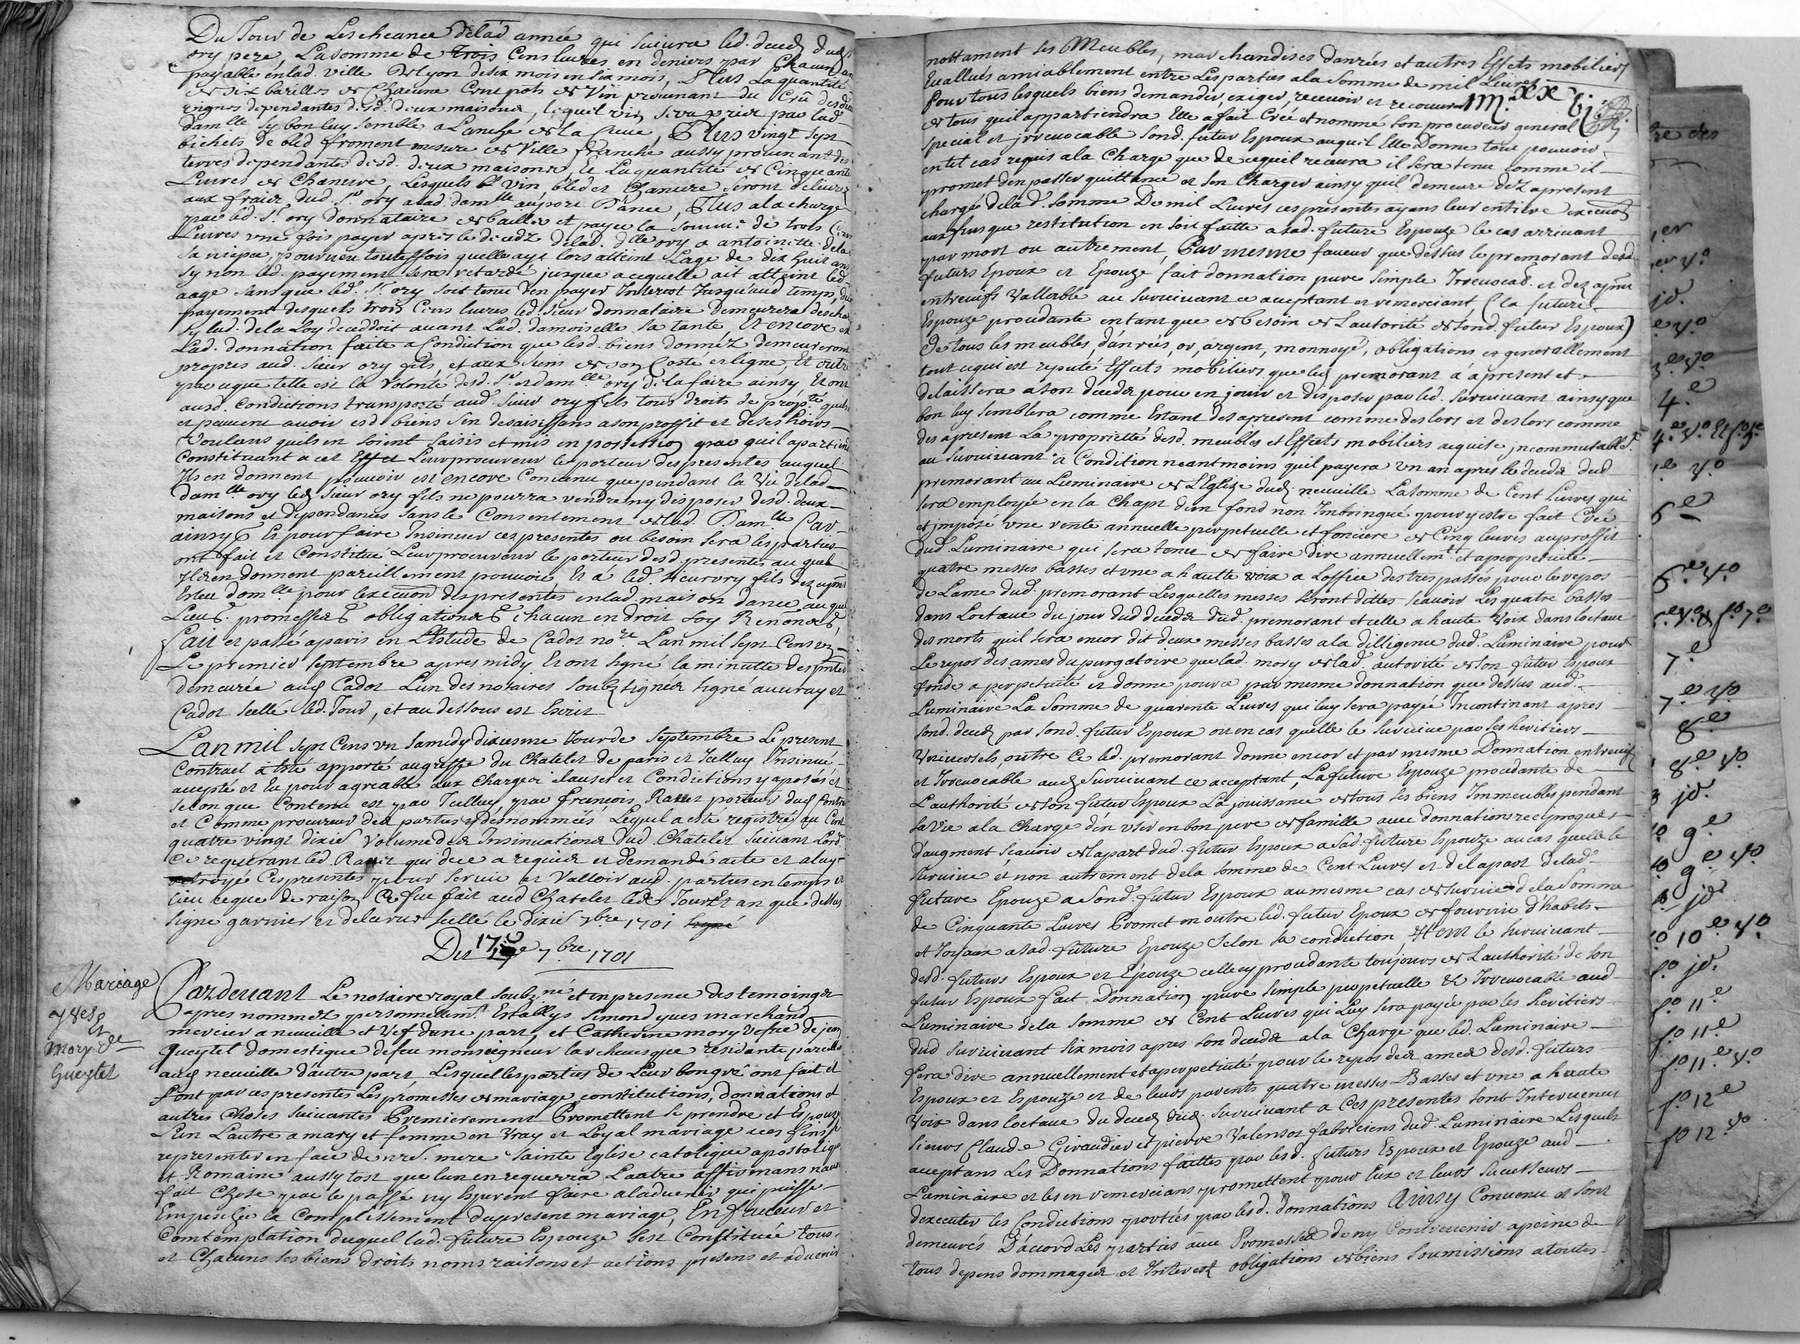 Du Jour de Lescheance delad année qui suivra led. deced dud.
ory pere, La somme de trois Cens livres en deniers par chacun an
payable enlad. ville De Lyon de six mois en six mois, Plus La quantité
de dix barilles de Chacune Cent pots de Vin provenant du Crû desd.
vignes dependantes desd. deux maisons, lequel vin sera prisé par lad.
damlle sy bon luy semble a Lanche de la Cuve, Plus vingt sept
bichets de bled froment mesure de Ville franche aussy provenant des
terres dependantes desd. deux maisons, et La quantité de Cinquante
Livres de Chanvre, Lesquels Vin, bled et Chanvre seront delivrez
aux fraix dud. Sr. ory a lad. damlle au port Dance, Plus a la charge
par led. Sr. ory donnataire de bailler et payer la somme de trois Cens
Livres une fois payer apres le decedz delad. Dlle ory a antoinette dela
sa niepce, pourveu toutteffois quelle aye lors atteint l'age de dix huit ans
sy non led. payement sera retardé jusque a ce quelle ait atteint led.
aage sans que led. Sr. ory soit tenu d'en payer Interest Jusqu'aud. temps, du
payement desquels trois Cens livres led. sieur donnataire demeurera descha
sy lad. dela Loy decedoit avant Lad. damoiselle sa tante, Et encore est
Lad. donnation faite a Condition que lesd. biens donnéz demeureront
propres aud. sieur ory fils, et aux siens de son Costé et ligne, Et outre
parceque telle est la Volonté desd. Sr. et damlle ory de la faire ainsy Et ont
ausd. conditions transporté aud. sieur ory fils tous droits de propté quils
et peuvent avoir esd. biens s'en desaisissans a son proffit et de ses hoirs
Voulans quils en soient saisis et mis en possession par qu'il apartiend
Constituant a cet Effet Leur procureur le porteur des presentes auquel
Ils en donnent pouvoir est encore Convenu que pendant la Vie delad.
damlle ory led. sieur ory fils ne pourra vendre ny disposer desd. deux
maisons et dependances sans le Consentement de lad. Damlle Car
ainsy &c Et pour faire Insinuer ces presentes ou besoin sera les parties
ont fait et Constitué Leur procureur le porteur desd. presentes auquel
Ils en donnent pareillement pouvoir Et a led. sieur ory fils
Esleu domlle pour lexecution des presentes enlad. maison dance auquel
Lieu &c promesses &c obligations &c chacun en droit soy Renonceans &c
fait et passé a paris en L'Estude de Cadot nore. L'an mil sept Cens un
Le premier septembre apres midy Et ont signé la minutte des pntes
demeurée aud. Cadot L'un des notaires soubz signés signé auvray et
Cadot scellé led. Jour, et au dessous est Escrit
L'an mil sept Cens un samedy dixiesme Jour de Septembre Le present
Contract a esté apporté au greffe du Chatelet de paris et Icelluy Insinué
accepté et eu pour agreable aux charges clauses et Conditions y aposées et
selon que Contenu est par Icelluy par françois Rauer porteur dud. Contra
et Comme procureur des parties y denommées Lequel a esté registré au Cent
quatre vingt dixie Volume des Insinuations dud. Chatelet suivant Lord
Ce requerant led. Rauer qui de ce a requis et demandé acte et a luy
octroyé Ces presentes pour servir et Valloir aud. parties en temps et
lieu ce que de raison Ce fut fait aud Chatelet led. Jour et an que dessus
signé garnier et delarue scellé le dixie 7bre 1701
Du 17e 7bre 1701
Mariage
yves &
mory vde
Gueytel
Pardevant Le notaire royal soubzné et en presence des temoings
apres nommés personnellemt Establys Simond yves marchand
mercier a neuville et Vef d'une part, et Catherine mory vefve de jean
Gueytel domestique de feu monseigneur larchevesque residante pareillemt
aud. neuville d'autre part, Lesquelles parties de Leur bon gré ont fait et
font par ces presentes Les promesses de mariage, constitutions, donnations et
autres choses suivantes Premierement Promettent se prendre et Espouser
L'un L'autre a mary et femme en vray et Loyal mariage a ces fins se
representer en face de nre. mere Sainte Eglise catolique apostolique
et Romaine aussy tost que lun en requerra L'autre affirmans navoir
fait Chose par le passé ny Espérent faire aladvenir qui puisse
Empescher la Complissement du present mariage, En faveur et
Contemplation duquel lad. future Espouze sest Constituée tous
et Chacuns ses biens droits noms raisons et actions presens et advenir
nottament ses Meubles, marchandises danrées et autres Effets mobiliers
Evallués amiablement entre Les parties a la Somme de mil Livres
Pour tous lesquels biens demander, exiger, recevoir et recouvrer
de tous quil appartiendra Elle a fait Créé et nommé son procureur general
special et jrrevocable sond. futur Espoux auquel Elle Donne tout pouvoir
en tel cas requis a la Charge que de ce quil recevra il sera tenu comme il
promet d'en passer quittance et s'en Charger ainsy quil demeure dez apresent
chargé delad. somme De mil Livres ces presentes ayans leur entiere execuon
aux fins que restitution en soit faitte a sad. future Espouze le cas arrivant
par mort ou autrement, Par mesme faveur que dessus le premorant desd.
futurs Epoux et Epouze fait donnation pure simple Irrevocad. et dez apnt
entrevifs Vallable au survivant ce aceptant et remerciant (la future
Espouze procedante entant que de besoin de Lautorité de sond. futur Espoux)
de tous les meubles, danrées, or, argent, monnoyé, obligations et generallement
tout ce qui est reputé Effets mobiliers que led. premorant a apresent et
delaissera a son decedz pour en jouir et disposer par led. survivant ainsy que
bon luy semblera comme Estant des apresent comme des lors et des lors comme
des apresent La propriette desd. meubles et Effets mobiliers acquise jncommutablet
au survivant a Condition neantmoins quil payera un an apres le decedz dud
premorant au Luminaire de L'Eglize dud. neuville La somme de Cent Livres qui
sera employée en la Chapt d'un fond non Imbringué pour y estre fait Créé
et imposé une rente annuelle perpetuelle et fonciere de Cinq livres au proffit
dud. Luminaire qui sera tenu de faire Dire annuellemt et a perpetuité
quatre messes basses et une a haulte voix a Loffice des trespassés pour le repos
de Lame dud. premorant Lesquelles messes seront dittes scavoir Les quatre basses
dans Loctave du jour dud decedz dud. premorant et celle a haute Voix dans loctave
des morts quil sera encor dit deux messes basses a la dilligence dud. Luminaire pour
Le repos des ames du purgatoire que lad. mory de lad. autorité de son futur Espoux
fonde a perpetuité et donne pour ce par mesme donnation que dessus aud.
Luminaire La Somme de quarente Livres qui luy sera payée Incontinant apres
sond. deced par sond. futur Espoux ou en cas quelle le survive par ses heritiers
Universels outre ce led. premorant donne encor et par mesme Donnation entrevifs
et Irrevocable aud. Survivant ce acceptant, La future Espouze procedante de
L'authorité de son futur Espoux La jouissance de tous ses biens Immeubles pendant
sa vie a la Charge d'en user en bon pere de famille avec donnation reciproque
d'augment scavoir de la part dud. futur Espoux a sad. future Espouze au cas quelle le
survive et non autrement de la somme de Cent Livres et de la part delad.
future Epouze a Sond. futur Espoux au mesme cas de survie de la Somme
de Cinquante Livres Promet en outre led. futur Epoux de fournir d'habits
et Joyaux a sad. future Epouze selon sa condition, Item le survivant
desd. futurs Espoux et Epouze celle cy procedante toujours de L'authorité de son
futur Espoux fait Donnation pure simple perpetuelle et Irrevocable aud
Luminaire de la Somme de Cent Livres qui Luy sera payée par les heritiers
dud survivant six mois apres son decedz a la Charge que led. Luminaire
fera dire annuellement et a perpetuité pour le repos des ames desd. futurs
Espoux et Espouze et de leurs parents quatre messes Basses et une a haute
Voix dans loctave du deced dud. survivant a Ces presentes sont Intervenus
sieurs Claude Giraudier et pierre Valensot fabriciens dud. Luminaire Lesquels
aceptans Les Donnations faittes par lesd. futurs Espoux et Epouze aud
Luminaire et les en remercians promettent pour Eux et leurs successeurs
d'executer les Conditions portées par lesd. donnations Ainsy Convenu et sont
demeurés D'accord Les parties avec Promesses de ny Contrevenir a peine de
tous depens dommages et Interest obligations de biens soumissions a toutes
4e
6e
6e. vo
7e
7e vo
8e
8e vo
jd.
9e
9e vo
jd.
10e vo
fo jd.
fo 11e
fo 11e
fo 11e vo
fo 12e
fo 12 vo